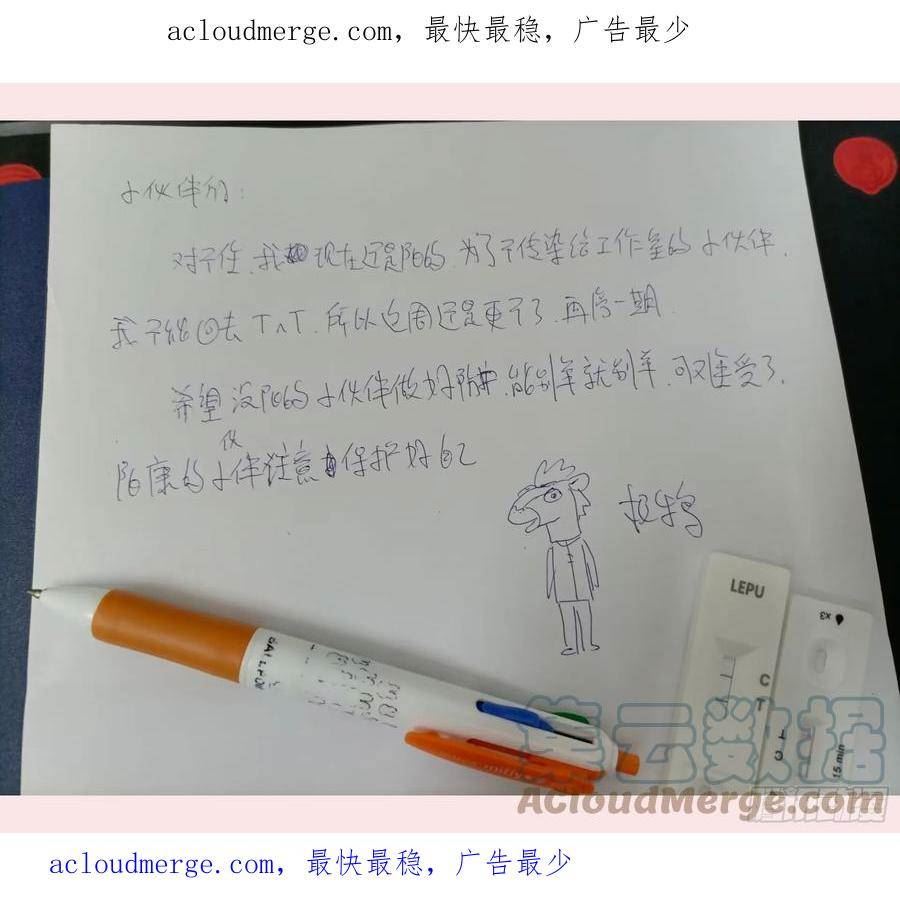 acloudmerge.com，最快最稳，广告最少
小伙伴们：
对不住，我现在还是阳的，为了不传染给工作室的小伙伴，
我不能回去TAT，所以这周还是更不了，再停一期.
希望没阳的小伙伴做好防护，能别羊就别羊，可难受了，
阳康的小伙伴注意保护好自己
LEPU
C
T
x3
15 min
集云数据
AcloudMerge.com
acloudmerge.com，最快最稳，广告最少